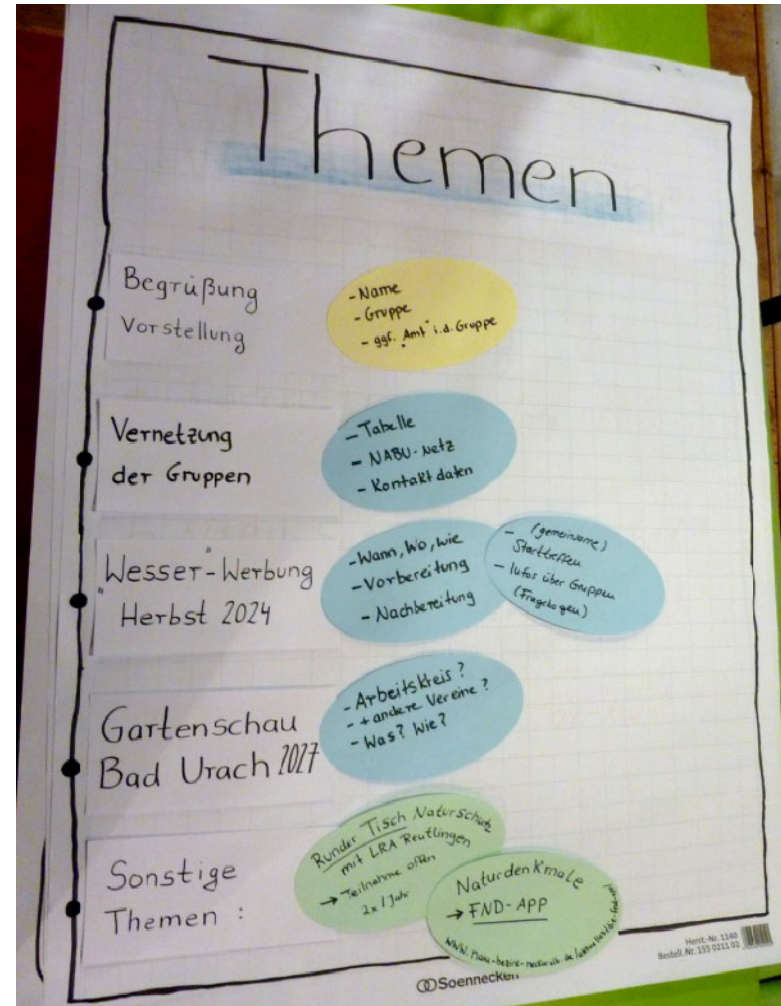 Themen
Begrüßung
Vorstellung
- Name
- Gruppe
- ggf. "Amt" i.d. Gruppe
Vernetzung
der Gruppen
- Tabelle
- NABU-Netz
- Kontaktdaten
"Wesser"-Werbung
Herbst 2024
- Wann, Wo, Wie
- Vorbereitung
- Nachbereitung
- (gemeinsame)
Starttreffen
- Infos über Gruppen
(Fragebogen)
Gartenschau
Bad Urach 2027
- Arbeitskreis?
- + andere Vereine?
- Was? Wie?
Sonstige
Themen:
Runder Tisch Naturschutz
mit LRA Reutlingen
→ Teilnahme offen
2x / Jahr
Naturdenkmale
→ FND-APP
Soennecken
Herst.-Nr. 1140
Bestell.-Nr. 155 0211 02